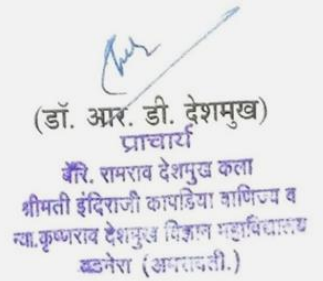 (डॉ. आर. डी. देशमुख)
प्राचार्य
बॅरि. रामराव देशमुख कला
श्रीमती इंदिराजी कापडिया वाणिज्य व
न्या.कृष्णराव देशमुख विज्ञान महाविद्यालय
बडनेरा (अमरावती.)